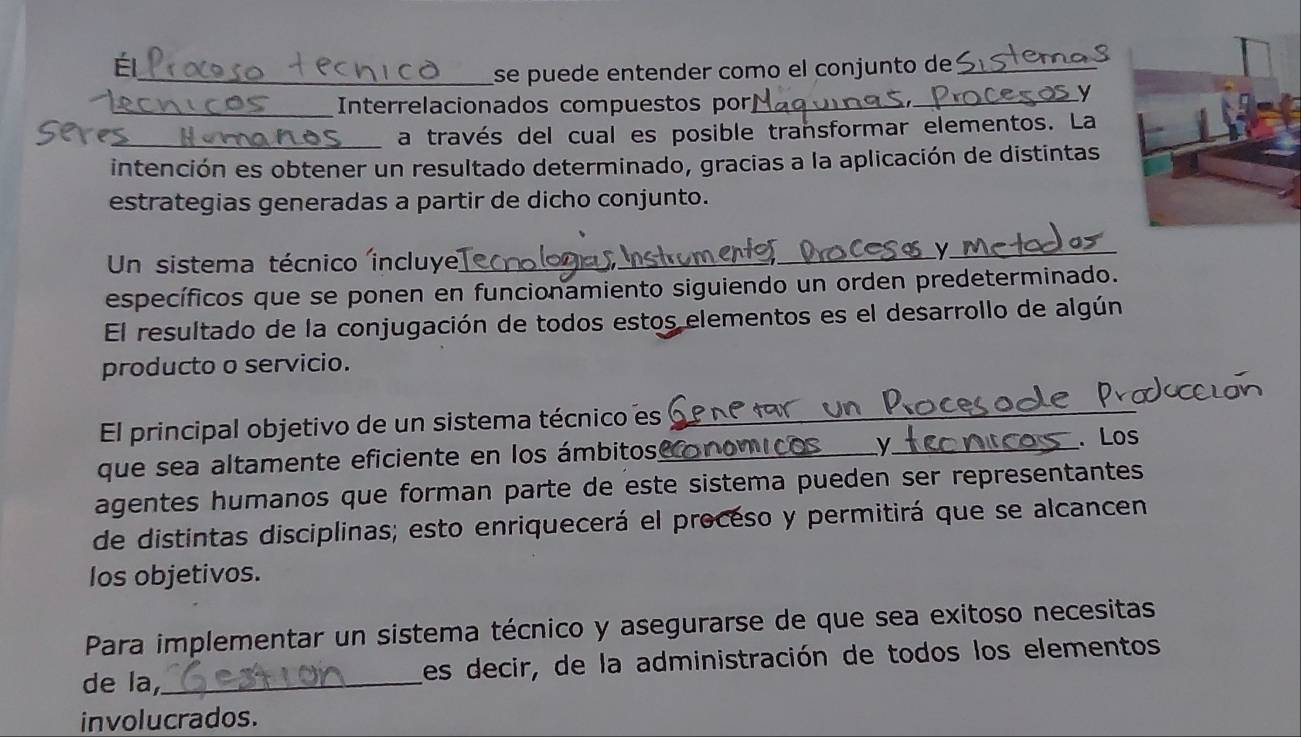 Él Proceso tecnico se puede entender como el conjunto de Sistemas
tecnicos Interrelacionados compuestos por Maquinas, Procesos y
seres Humanos a través del cual es posible transformar elementos. La
intención es obtener un resultado determinado, gracias a la aplicación de distintas
estrategias generadas a partir de dicho conjunto.
Un sistema técnico incluye Tecnologias, Instrumentos, procesos y metodos
específicos que se ponen en funcionamiento siguiendo un orden predeterminado.
El resultado de la conjugación de todos estos elementos es el desarrollo de algún
producto o servicio.
El principal objetivo de un sistema técnico es Generar un Proceso de Producción
que sea altamente eficiente en los ámbitos economicos y tecnicos. Los
agentes humanos que forman parte de este sistema pueden ser representantes
de distintas disciplinas; esto enriquecerá el proceso y permitirá que se alcancen
los objetivos.
Para implementar un sistema técnico y asegurarse de que sea exitoso necesitas
de la, Gestion es decir, de la administración de todos los elementos
involucrados.